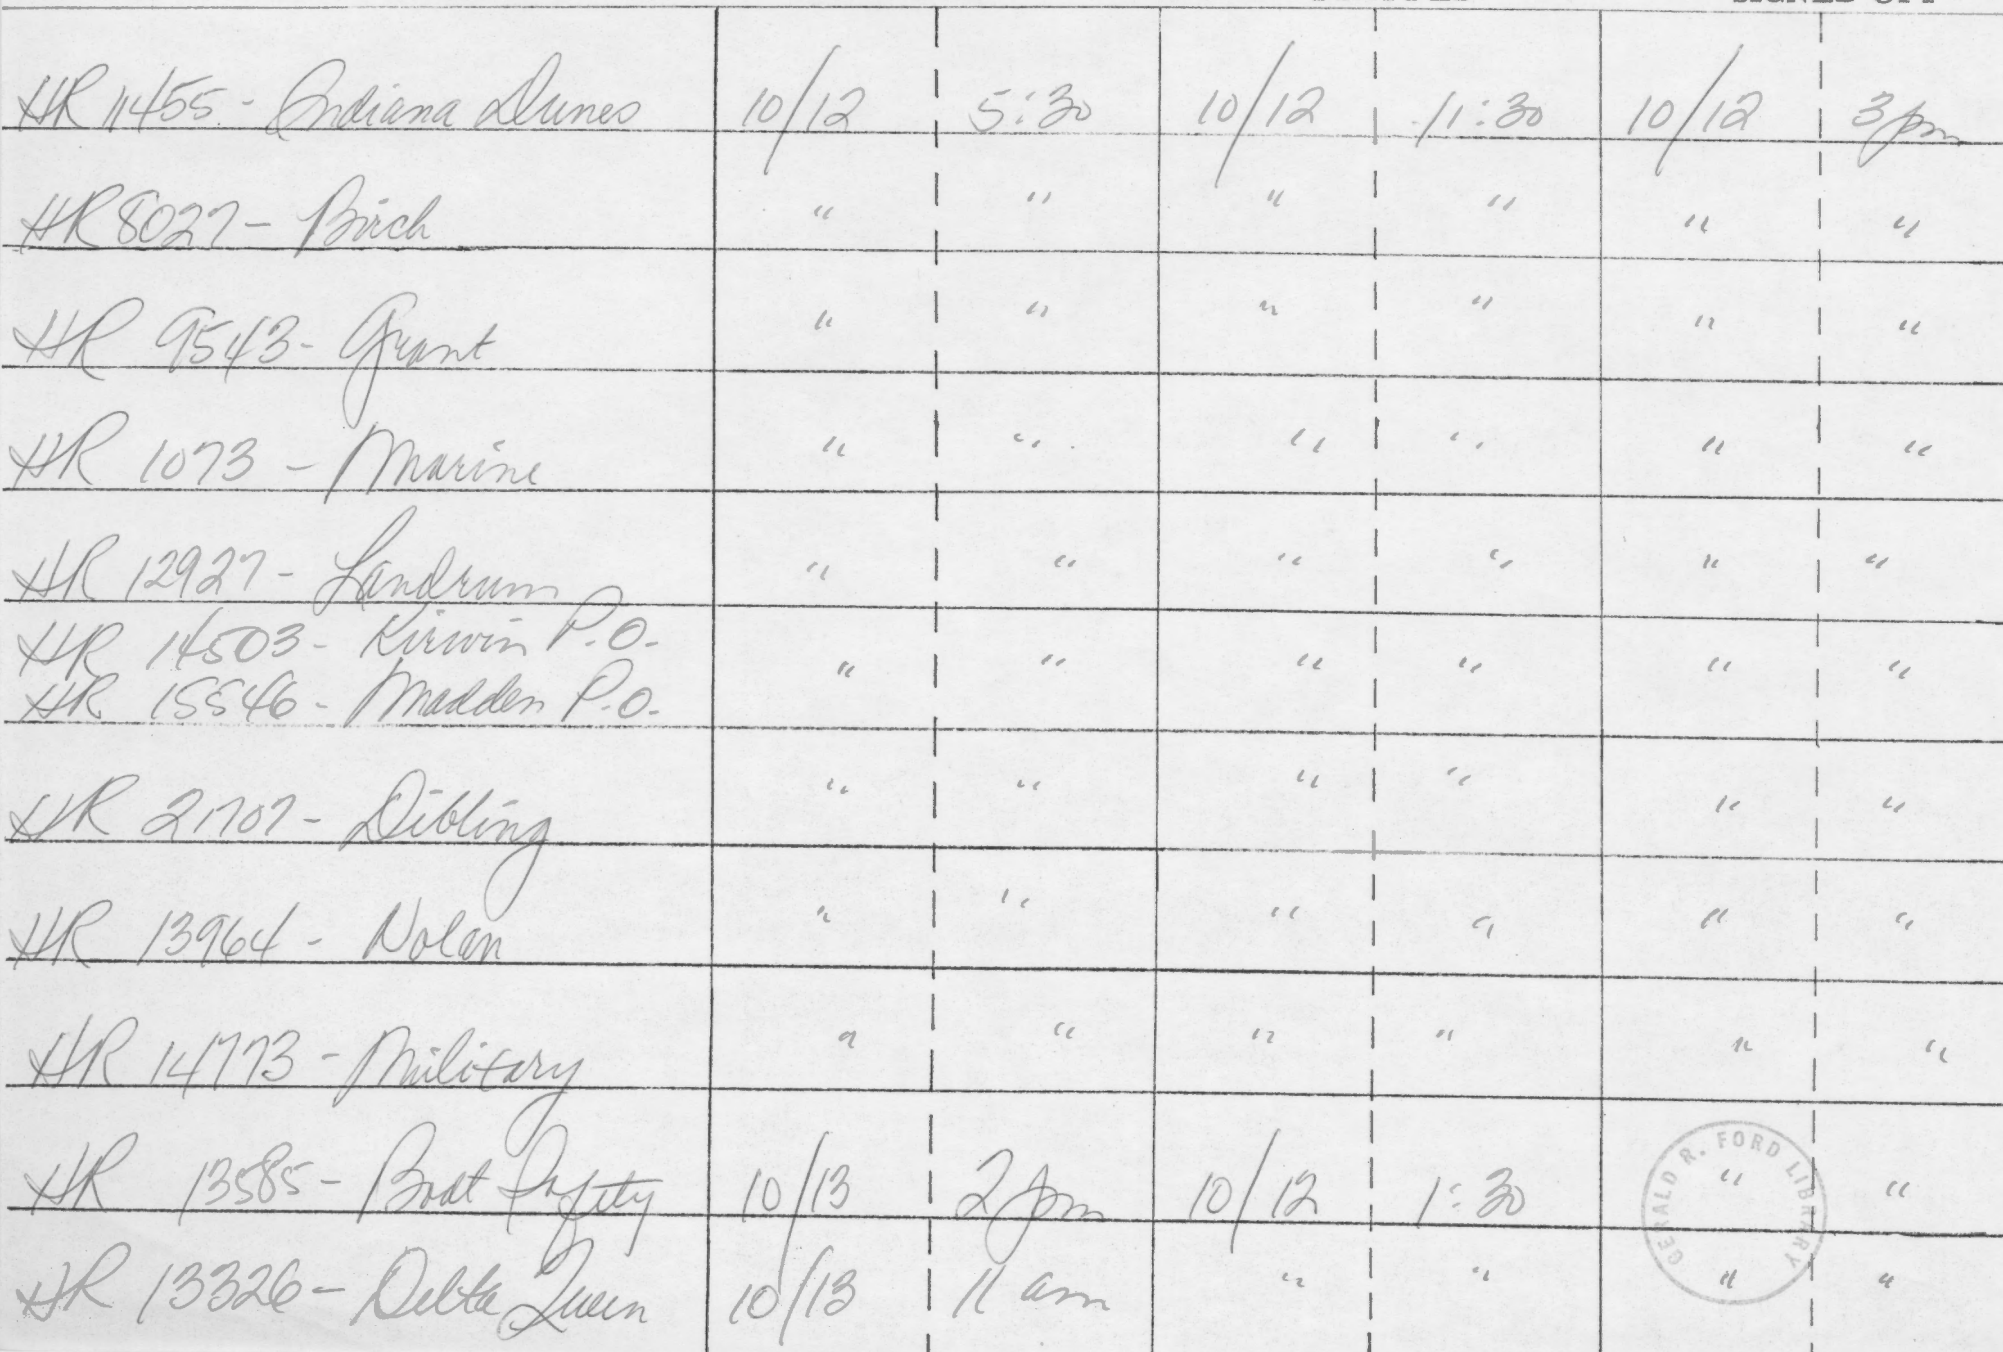 SIGNED OFF
HR 11455 - Indiana Dunes 10/12 5:30 10/12 11:30 10/12 3pm
HR 8027 - Birch " " " " " "
HR 9543 - Grant " " " " " "
HR 1073 - Marine " " " " " "
HR 12927 - Landrum " " " " " "
HR 14503 - Kirwin P.O.
HR 15546 - Madden P.O. " " " " " "
HR 21707 - Dibling " " " " " "
HR 13964 - Nolan " " " " " "
HR 14773 - Military " " " " " "
HR 13585 - Boat Safety 10/13 2pm 10/12 1:30 " "
HR 13326 - Delta Queen 10/13 11 am " " " "
GERALD R. FORD LIBRARY